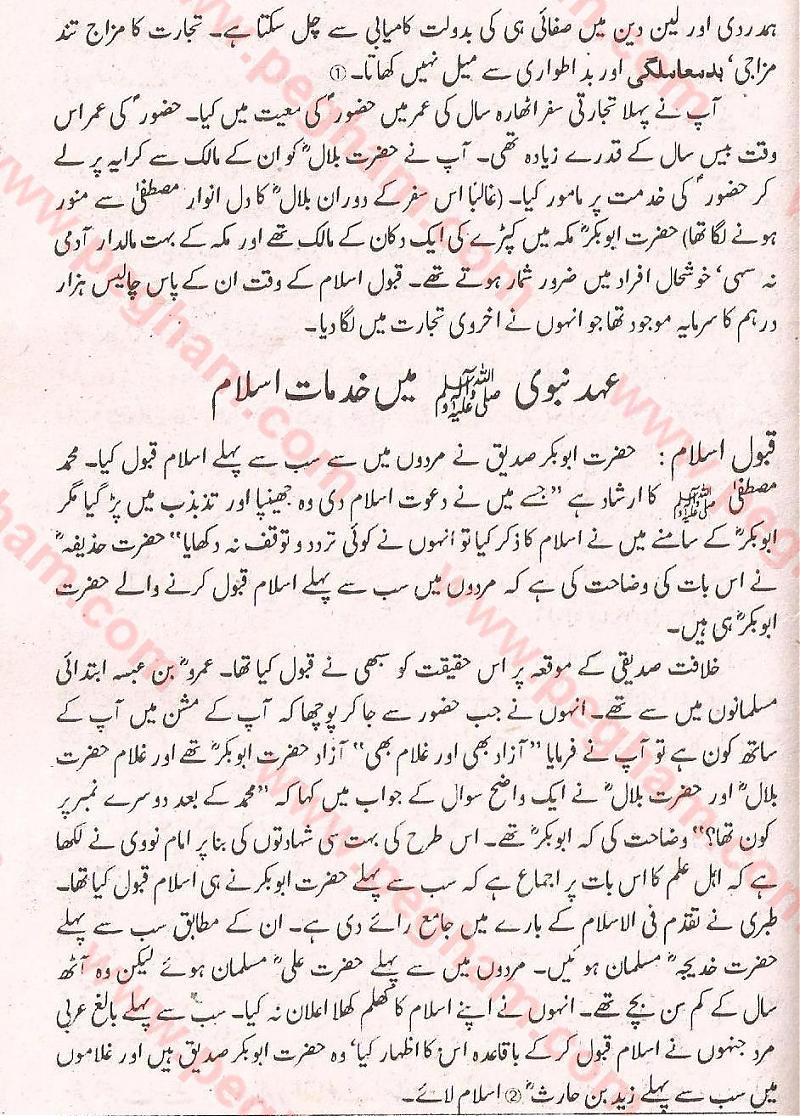 ہمدردی اور لین دین میں صفائی ہی کی بدولت کامیابی سے چل سکتا ہے۔ تجارت کا مزاج تند
مزاجی‘ بدمعاملگی اور بد اطواری سے میل نہیں کھاتا۔ ①
آپ نے پہلا تجارتی سفر اٹھارہ سال کی عمر میں حضورؐ کی معیت میں کیا۔ حضورؐ کی عمر اس
وقت بیس سال کے قدرے زیادہ تھی۔ آپ نے حضرت بلالؓ کو ان کے مالک سے کرایہ پر لے
کر حضورؐ کی خدمت پر مامور کیا۔ (غالبًا اس سفر کے دوران بلالؓ کا دل انوار مصطفیٰ سے منور
ہونے لگا تھا) حضرت ابوبکرؓ مکہ میں کپڑے کی ایک دکان کے مالک تھے اور مکہ کے بہت مالدار آدمی
نہ سہی‘ خوشحال افراد میں ضرور شمار ہوتے تھے۔ قبول اسلام کے وقت ان کے پاس چالیس ہزار
درہم کا سرمایہ موجود تھا جو انہوں نے اخروی تجارت میں لگا دیا۔
عہد نبوی ﷺ میں خدمات اسلام
قبول اسلام: حضرت ابوبکر صدیق نے مردوں میں سے سب سے پہلے اسلام قبول کیا۔ محمد
مصطفیٰ ﷺ کا ارشاد ہے ”جسے میں نے دعوت اسلام دی وہ جھینپا اور تذبذب میں پڑ گیا مگر
ابوبکرؓ کے سامنے میں نے اسلام کا ذکر کیا تو انہوں نے کوئی تردد و توقف نہ دکھایا“ حضرت حذیفہؓ
نے اس بات کی وضاحت کی ہے کہ مردوں میں سب سے پہلے اسلام قبول کرنے والے حضرت
ابوبکرؓ ہی ہیں۔
خلافت صدیقی کے موقعہ پر اس حقیقت کو سبھی نے قبول کیا تھا۔ عمروؓ بن عبسہ ابتدائی
مسلمانوں میں سے تھے۔ انہوں نے جب حضور سے جا کر پوچھا کہ آپ کے مشن میں آپ کے
ساتھ کون ہے تو آپ نے فرمایا ”آزاد بھی اور غلام بھی“ آزاد حضرت ابوبکرؓ تھے اور غلام حضرت
بلالؓ اور حضرت بلالؓ نے ایک واضح سوال کے جواب میں کہا کہ ”محمد کے بعد دوسرے نمبر پر
کون تھا؟“ وضاحت کی کہ ابوبکرؓ تھے۔ اس طرح کی بہت سی شہادتوں کی بنا پر امام نووی نے لکھا
ہے کہ اہل علم کا اس بات پر اجماع ہے کہ سب سے پہلے حضرت ابوبکر نے ہی اسلام قبول کیا تھا۔
طبری نے تقدم فی الاسلام کے بارے میں جامع رائے دی ہے۔ ان کے مطابق سب سے پہلے
حضرت خدیجہؓ مسلمان ہوئیں۔ مردوں میں سے پہلے حضرت علیؓ مسلمان ہوئے لیکن وہ آٹھ
سال کے کم سن بچے تھے۔ انہوں نے اپنے اسلام کا کھلم کھلا اعلان نہ کیا۔ سب سے پہلے بالغ عربی
مرد جنہوں نے اسلام قبول کر کے باقاعدہ اس کا اظہار کیا‘ وہ حضرت ابوبکر صدیق ہیں اور غلاموں
میں سب سے پہلے زید بن حارثؓ ② اسلام لائے۔
www.pegham.com
www.pegham.com
www.pegham.com
www.pegham.com
www.pegham.com